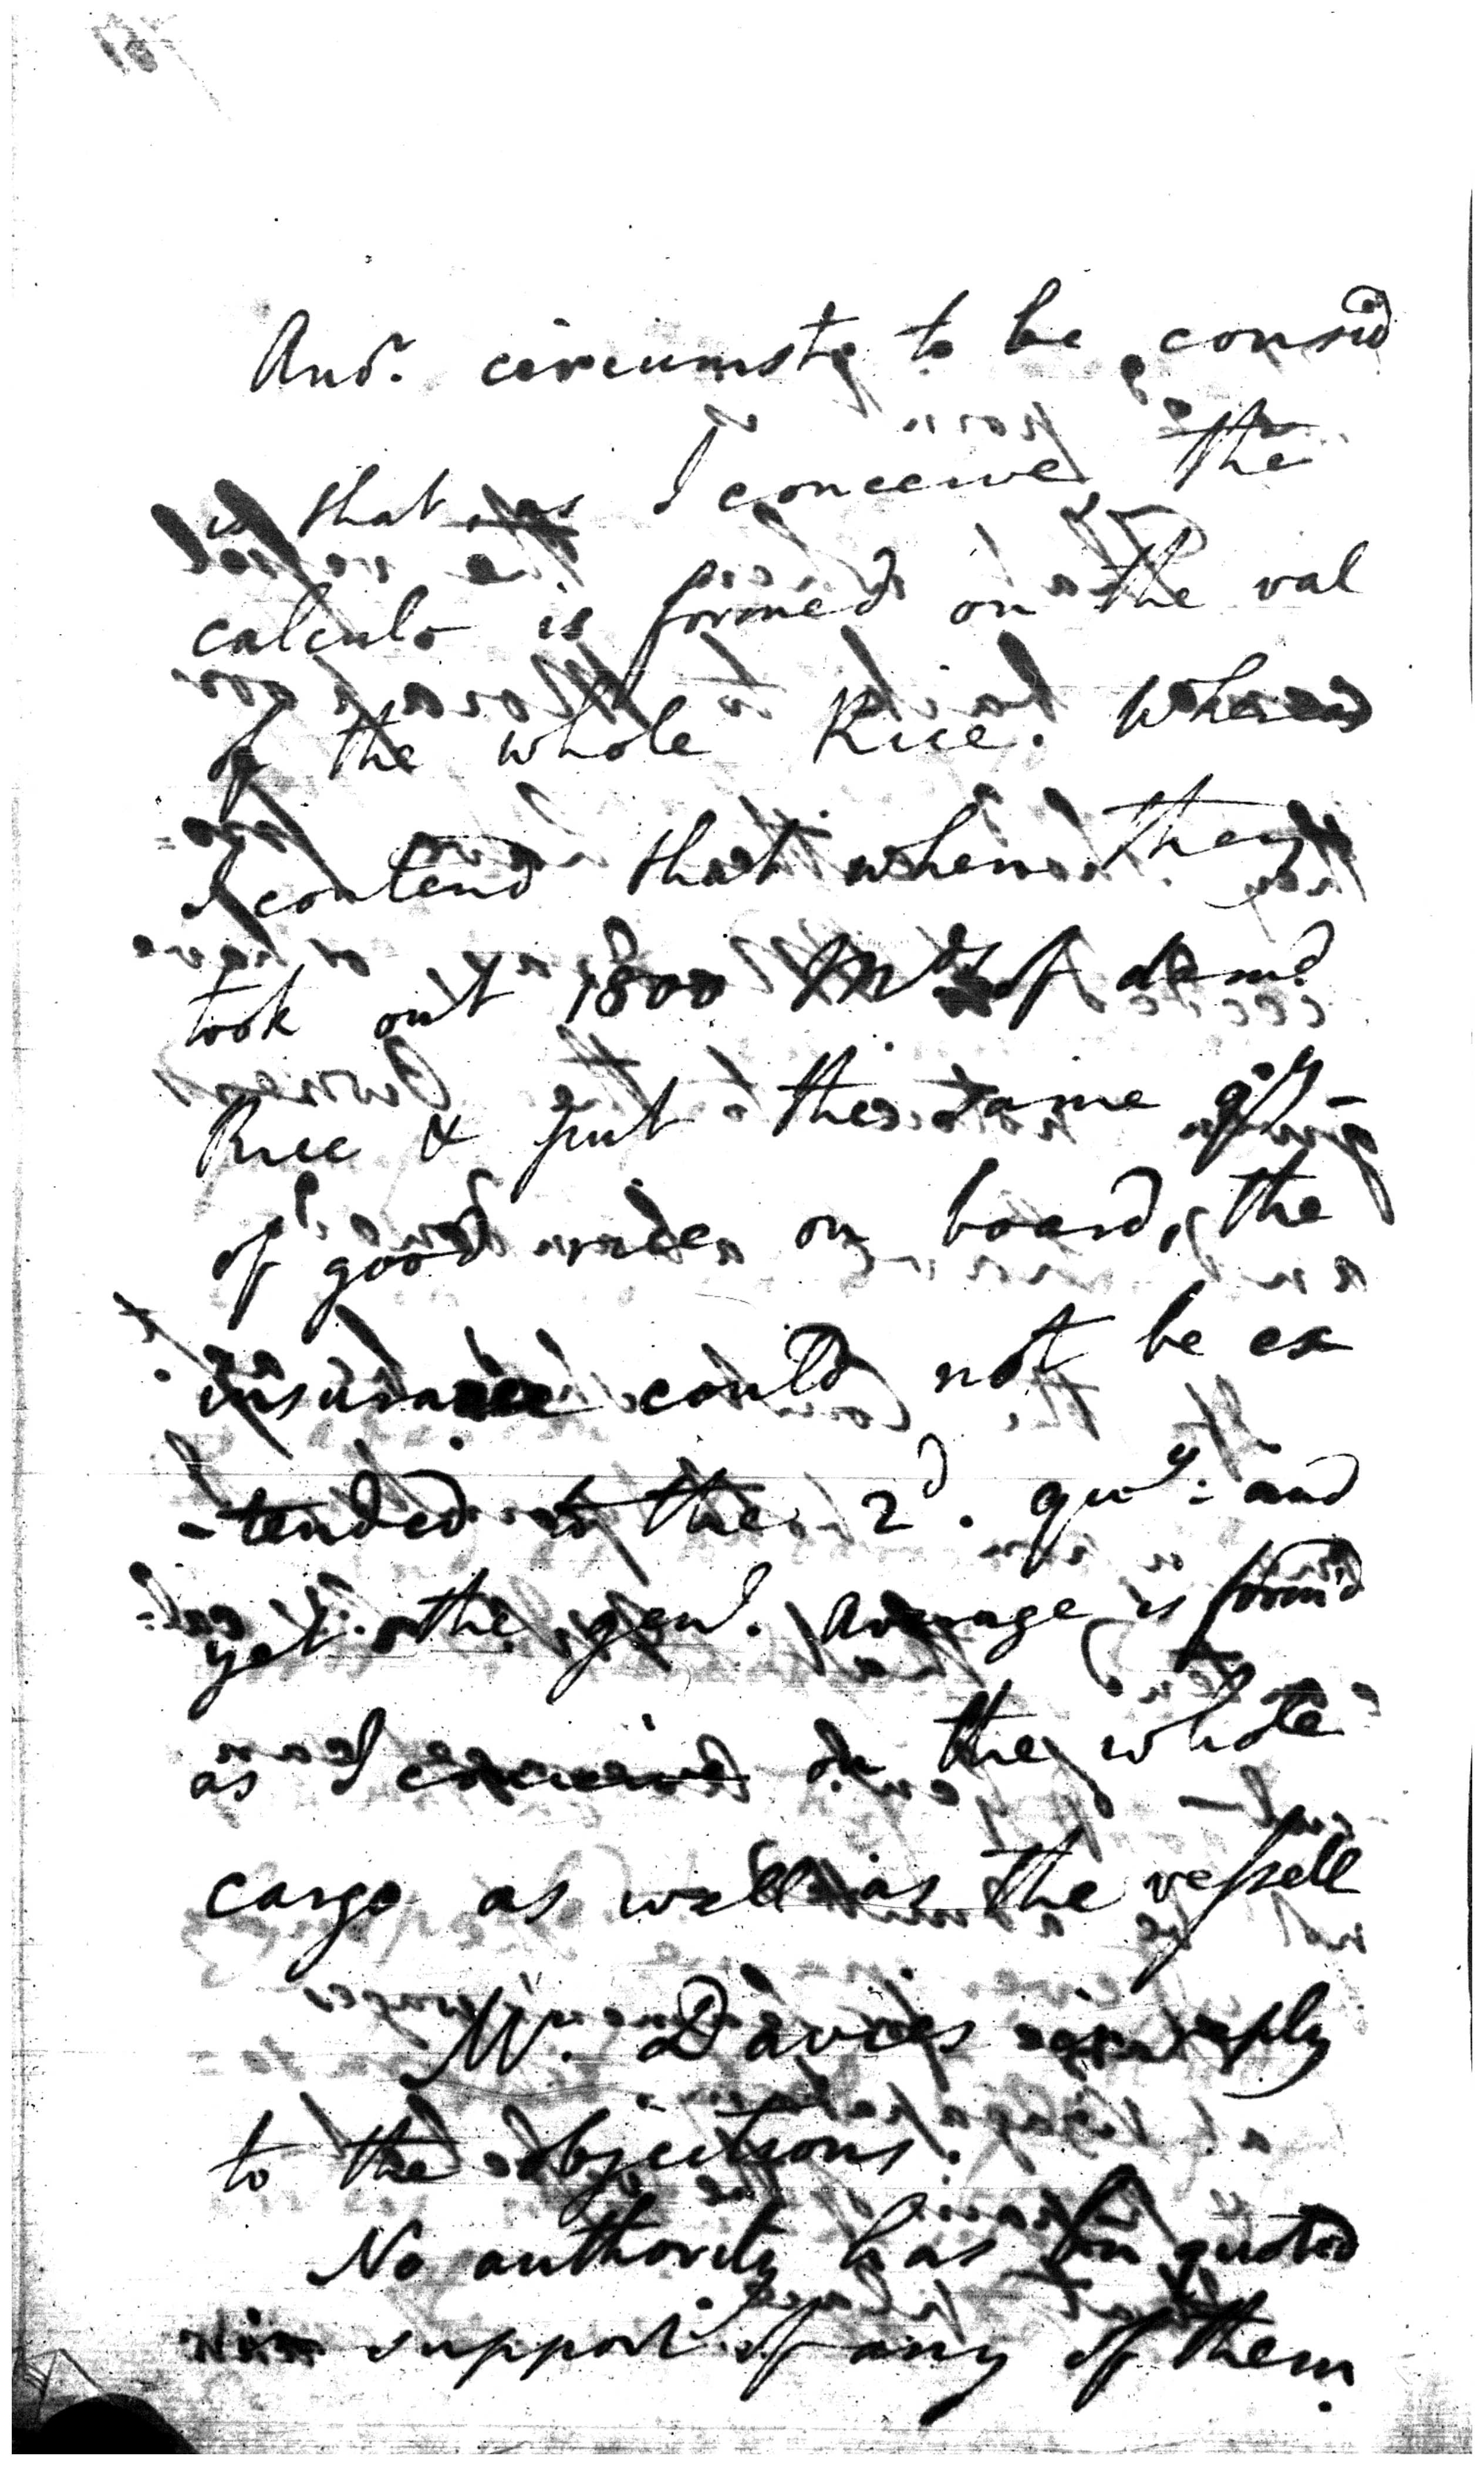 Anor. circumste to be consid
is that as I conceive the
calculo is formed on the val
of the whole Rice. Whereas
I contend that when they
took out 1800 Mds of damd
Rice & put the same qty
of good rice on board, the
insurance could not be ex
-tended to the 2d. quy: and
yet the genl. Average is formd
as I conceive on the whole
cargo as well as the vessell
Mr. Davies reply
to the objections.
No authority has bn quoted
in support of any of them.